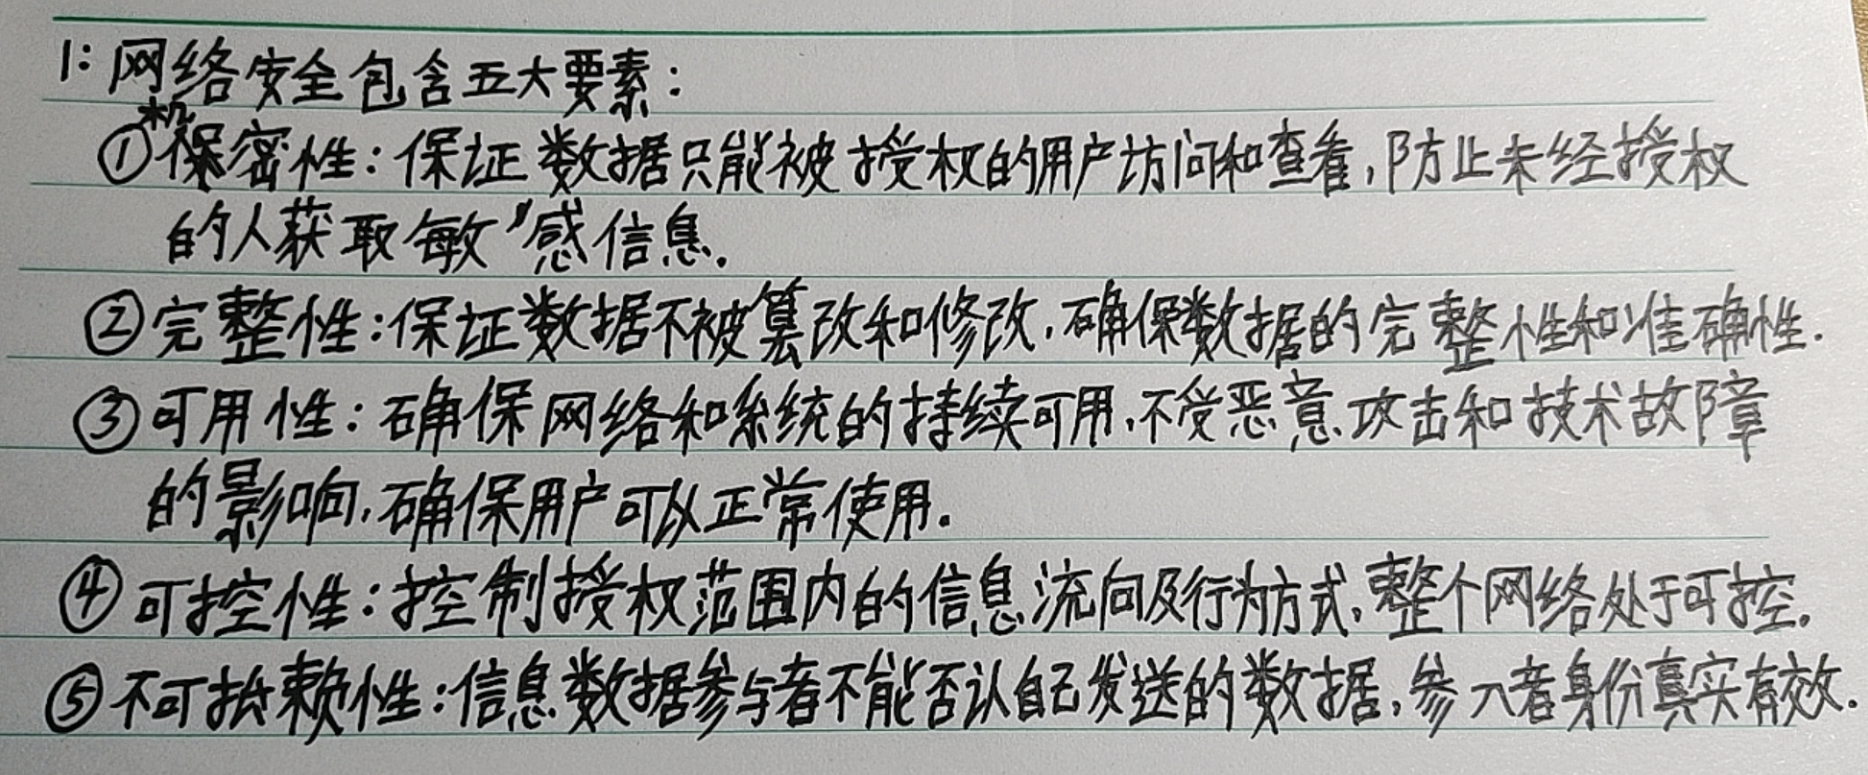 1：网络安全包含五大要素：
①机密性：保证数据只能被授权的用户访问和查看，防止未经授权
的人获取敏感信息.
②完整性：保证数据不被篡改和修改，确保数据的完整性和准确性.
③可用性：确保网络和系统的持续可用，不受恶意攻击和技术故障
的影响，确保用户可以正常使用.
④可控性：控制授权范围内的信息流向及行为方式，整个网络处于可控.
⑤不可抵赖性：信息数据参与者不能否认自己发送的数据，参入者身份真实有效.